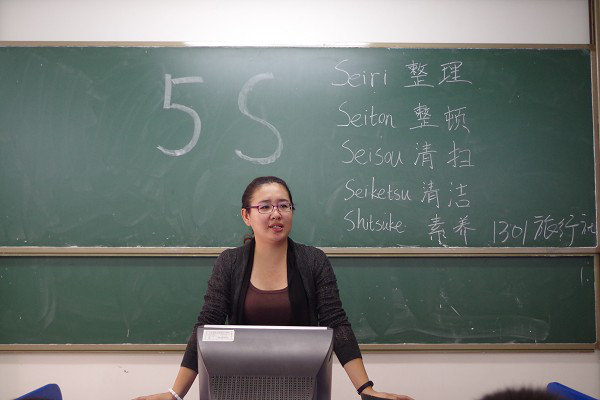 5S
Seiri 整理
Seiton 整顿
Seisou 清扫
Seiketsu 清洁
Shitsuke 素养 1301旅行社